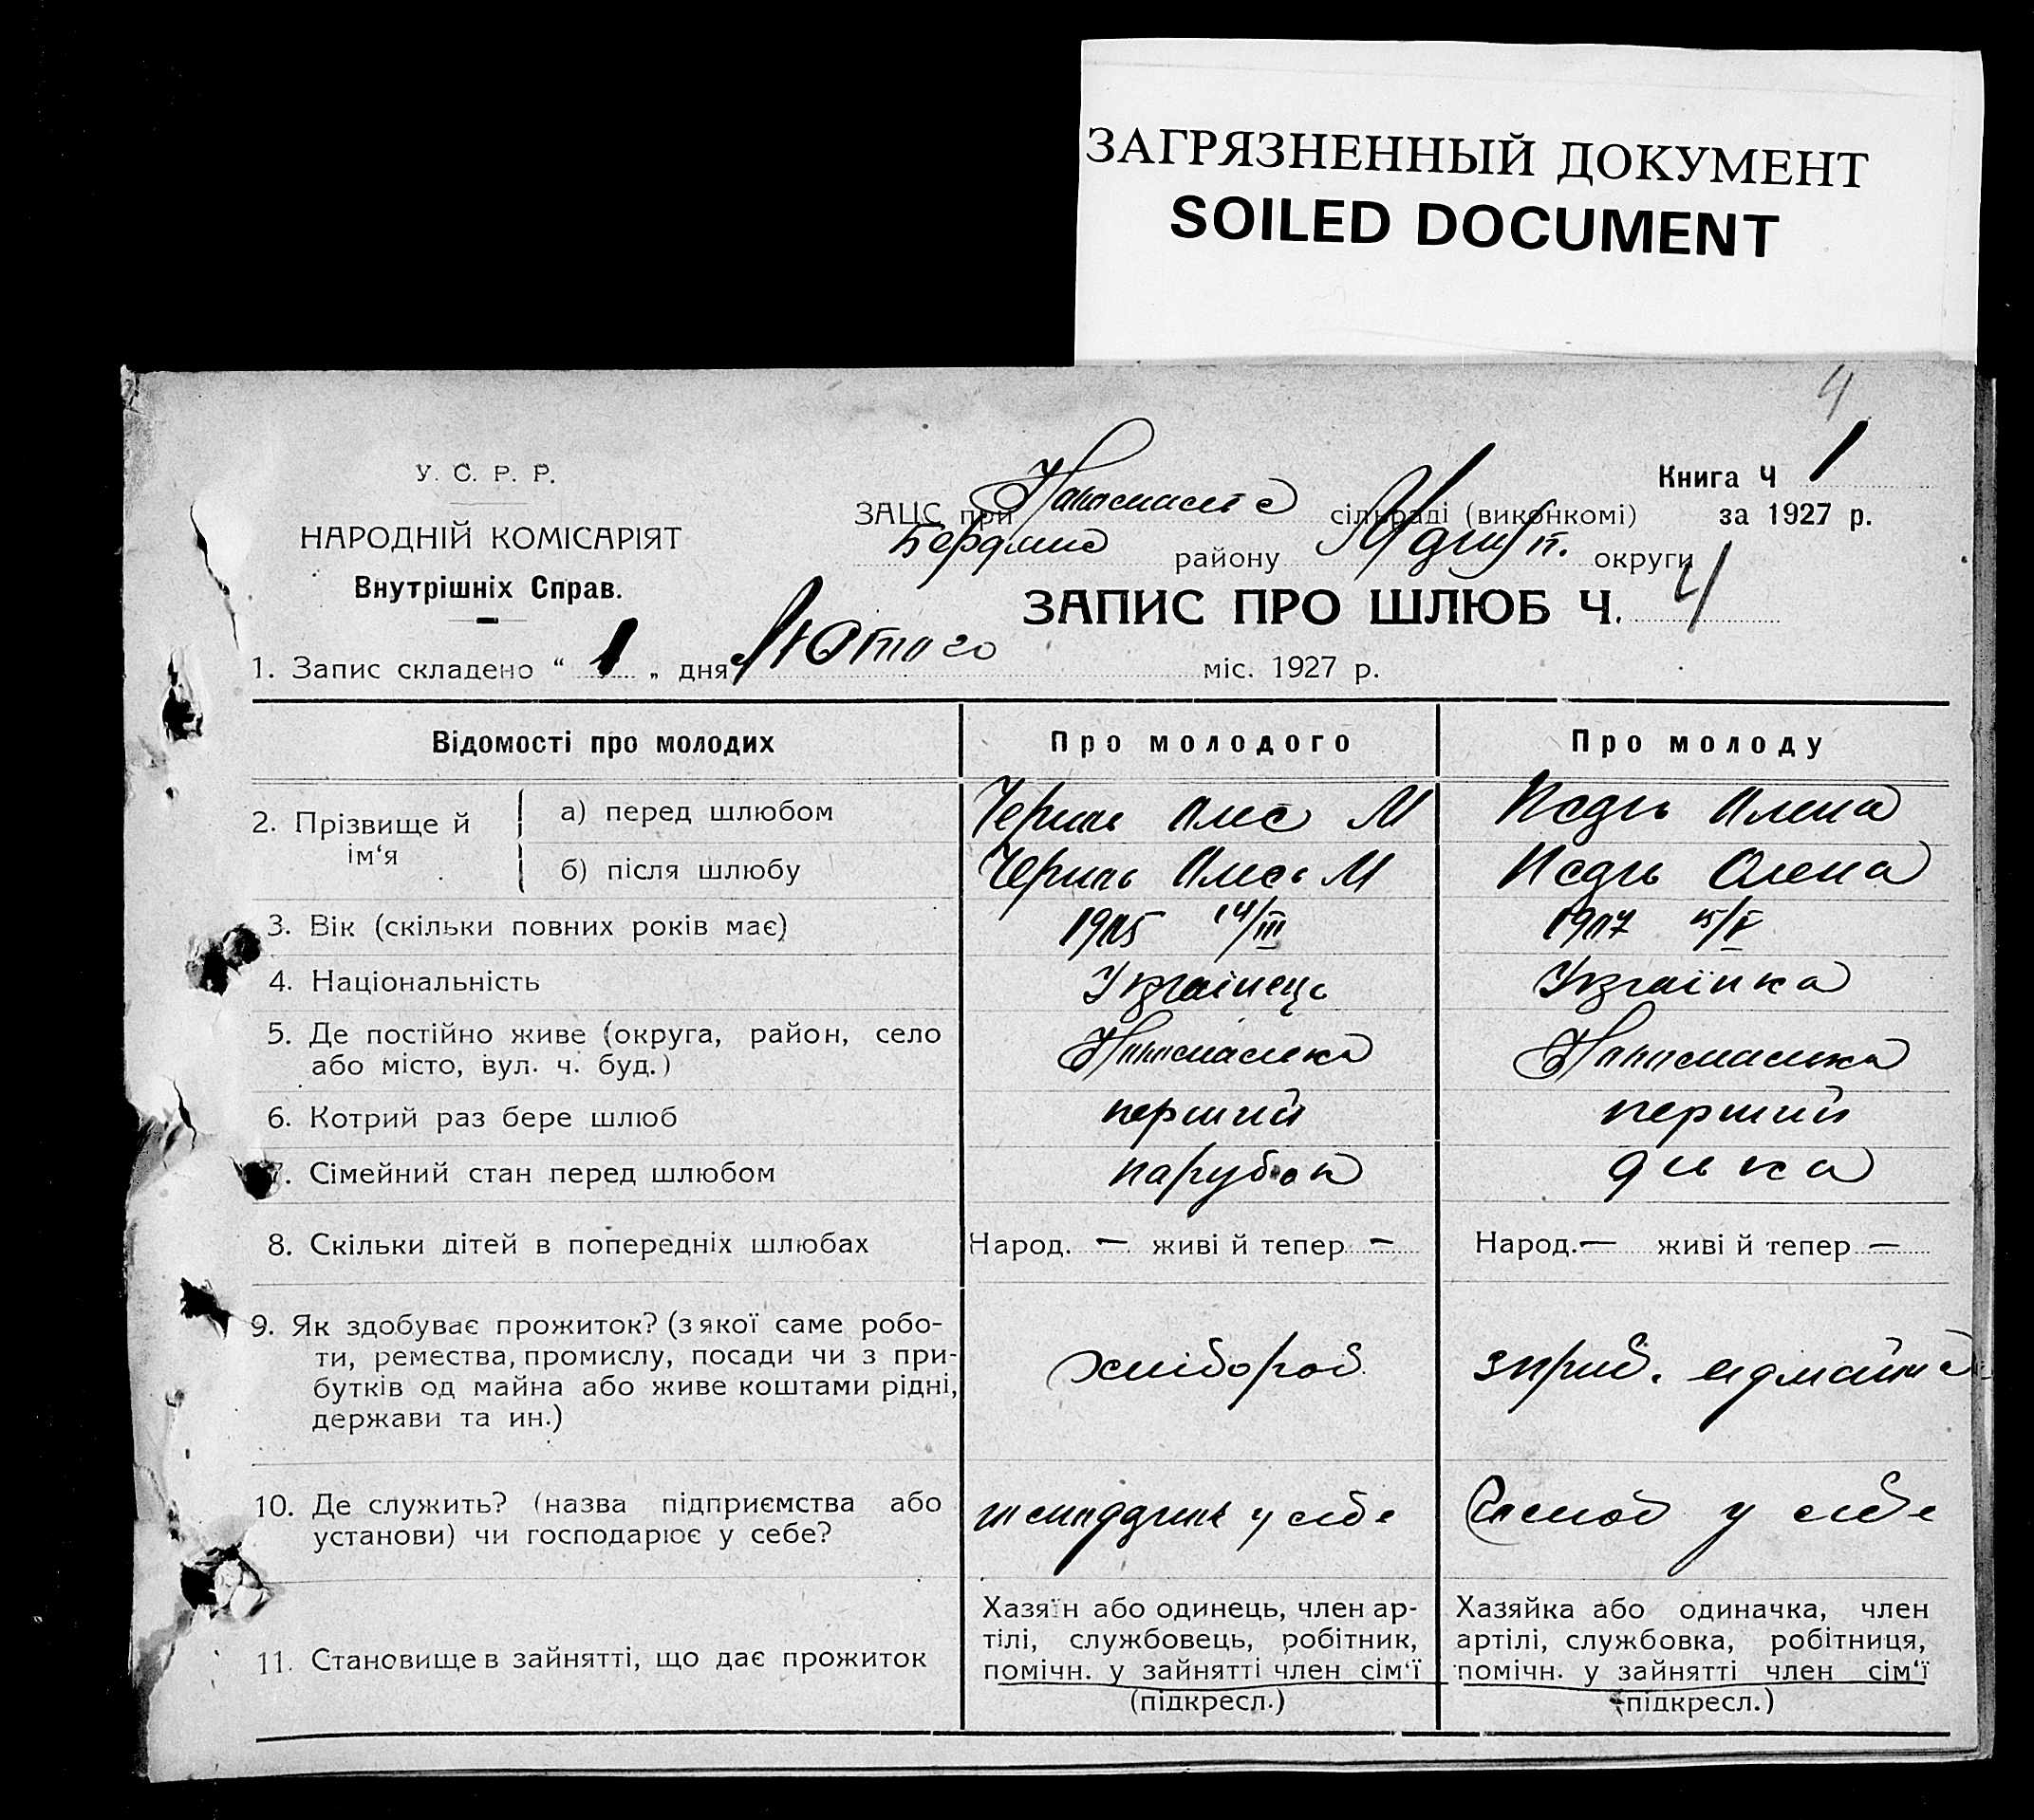 ЗАГРЯЗНЕННЫЙ ДОКУМЕНТ
SOILED DOCUMENT
4
У. С. Р. Р.
НАРОДНІЙ КОМІСАРІЯТ
Внутрішніх Справ.
Книга Ч 1
за 1927 р.
ЗАЦС при сільраді (виконкомі)
району округи
ЗАПИС ПРО ШЛЮБ Ч. 4
1. Запис складено “ 1 „ дня Лютого міс. 1927 р.
Відомості про молодих
Про молодого
Про молоду
2. Прізвище й ім‘я
а) перед шлюбом
М
Олена
б) після шлюбу
М
Олена
3. Вік (скільки повних років має)
1905 14/III
1907 15/V
4. Національність
Українець
Українка
5. Де постійно живе (округа, район, село
або місто, вул. ч. буд.)
6. Котрий раз бере шлюб
перший
перший
7. Сімейний стан перед шлюбом
парубок
дівка
8. Скільки дітей в попередніх шлюбах
Народ. — живі й тепер —
Народ. — живі й тепер —
9. Як здобуває прожиток? (з якої саме робо-
ти, ремества, промислу, посади чи з при-
бутків од майна або живе коштами рідні,
держави та ин.)
хлібороб
з приб. од майна
10. Де служить? (назва підприємства або
установи) чи господарює у себе?
у себе
у себе
11. Становище в зайнятті, що дає прожиток
Хазяїн або одинець, член ар-
тілі, службовець, робітник,
помічн. у зайнятті член сім‘ї
(підкресл.)
Хазяйка або одиначка, член
артілі, службовка, робітниця,
помічн. у зайнятті член сім‘ї
(підкресл.)